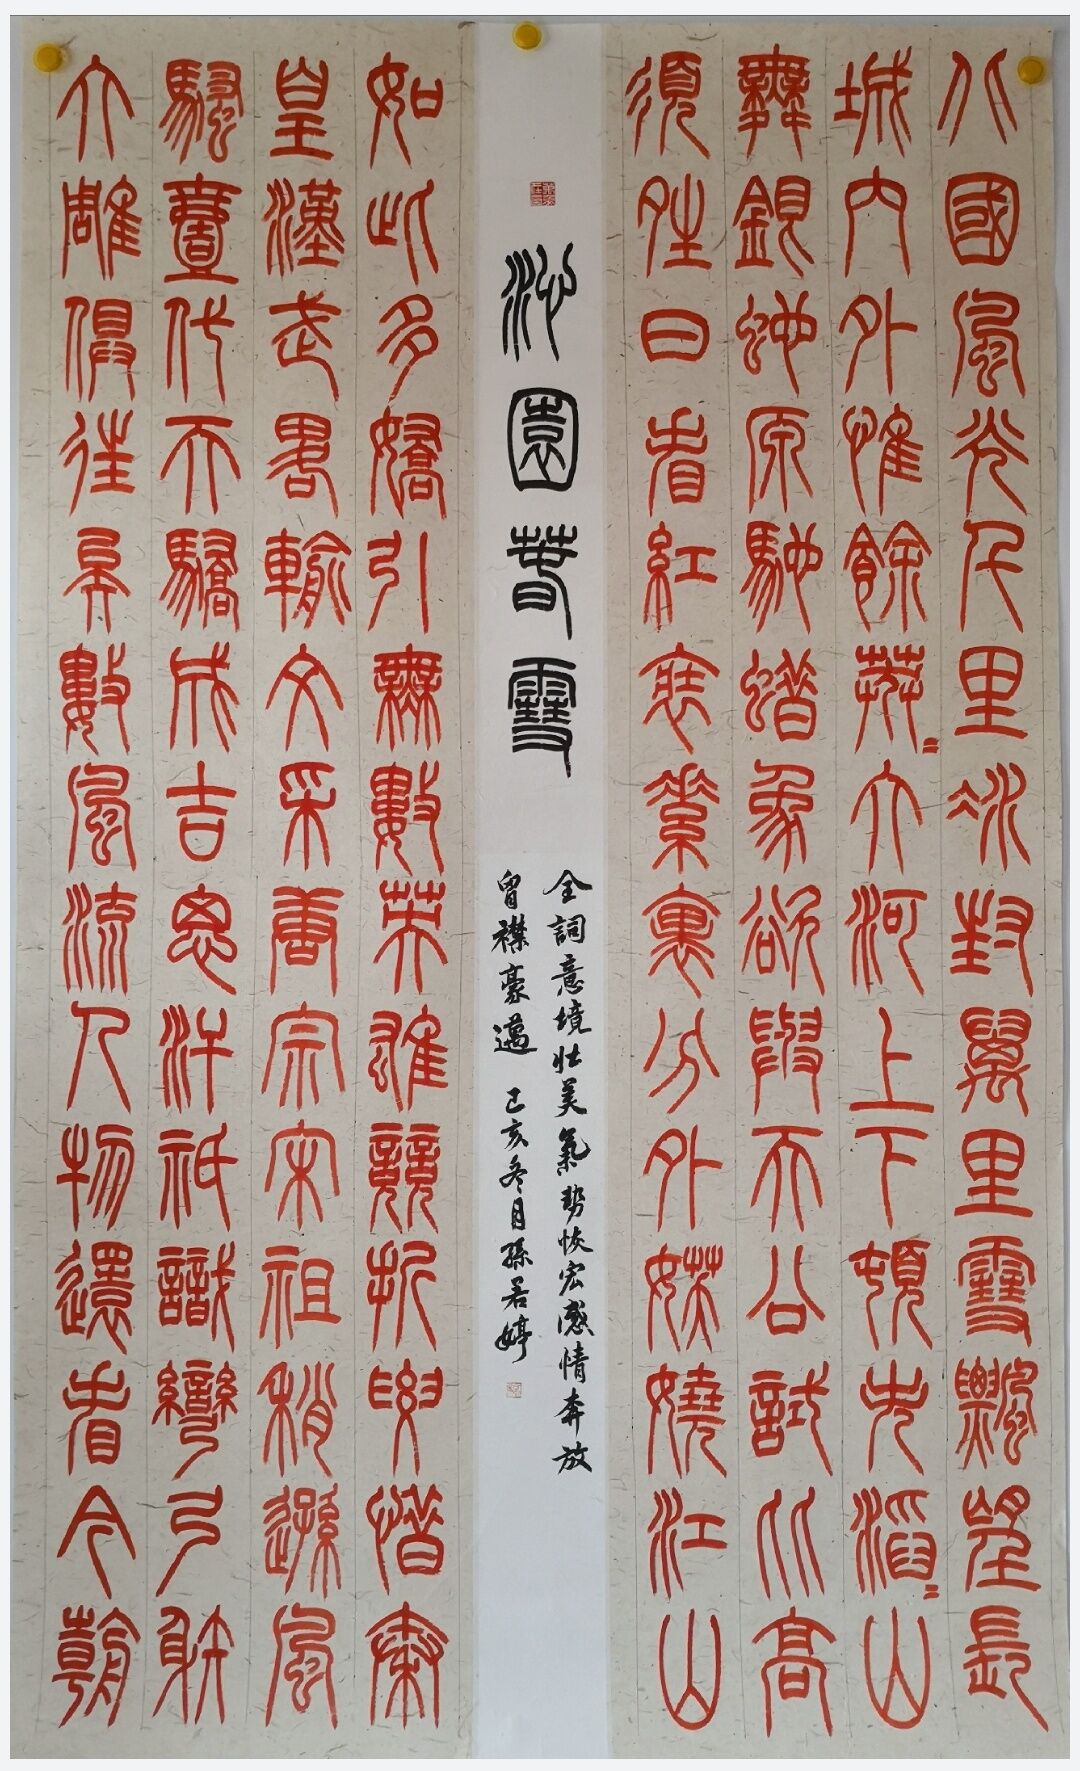 北國風光千里冰封萬里雪飄望長
城內外惟餘莽〻大河上下頓失滔〻山
舞銀蛇原馳蜡象欲與天公試比高
須晴日看紅裝素裹分外妖嬈江山
沁園春雪
全詞意境壯美氣勢恢宏感情奔放
胷襟豪邁 己亥冬月孫若婷
如此多嬌引無數英雄競折腰惜秦
皇漢武略輸文采唐宗宋祖稍遜風
騷壹代天驕成吉思汗祇識彎弓射
大雕俱往矣數風流人物還看今朝